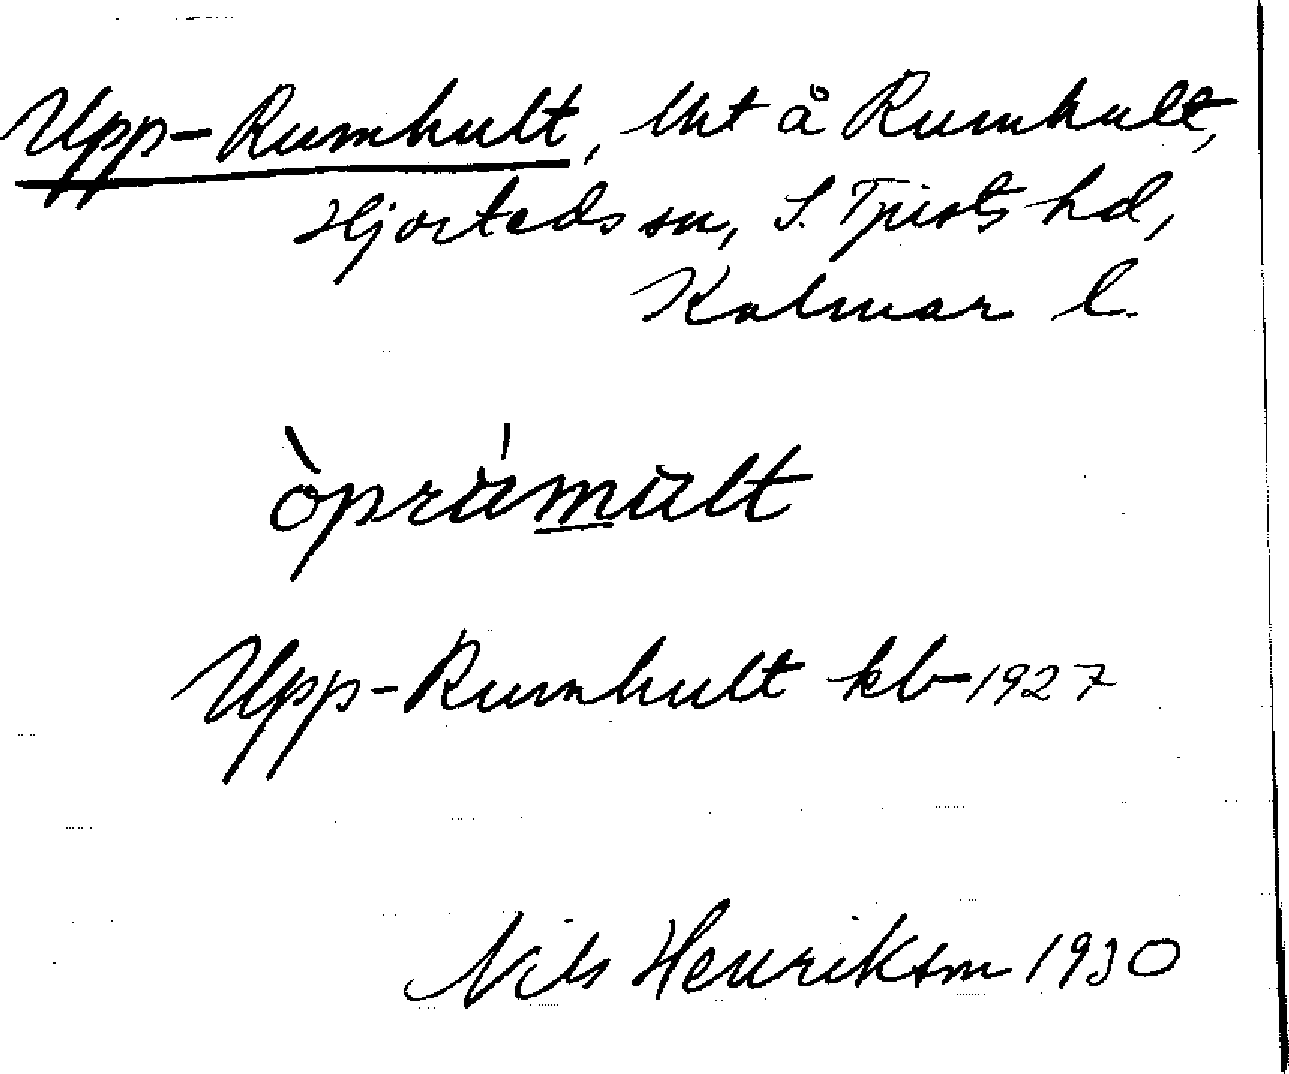 Upp-Rumhult, lht å Rumhult,
Hjorteds sn, S. Tjusts hd,
Kalmar l.
òprùmult
Upp-Rumhult kb 1927
Nils Henrikson 1930